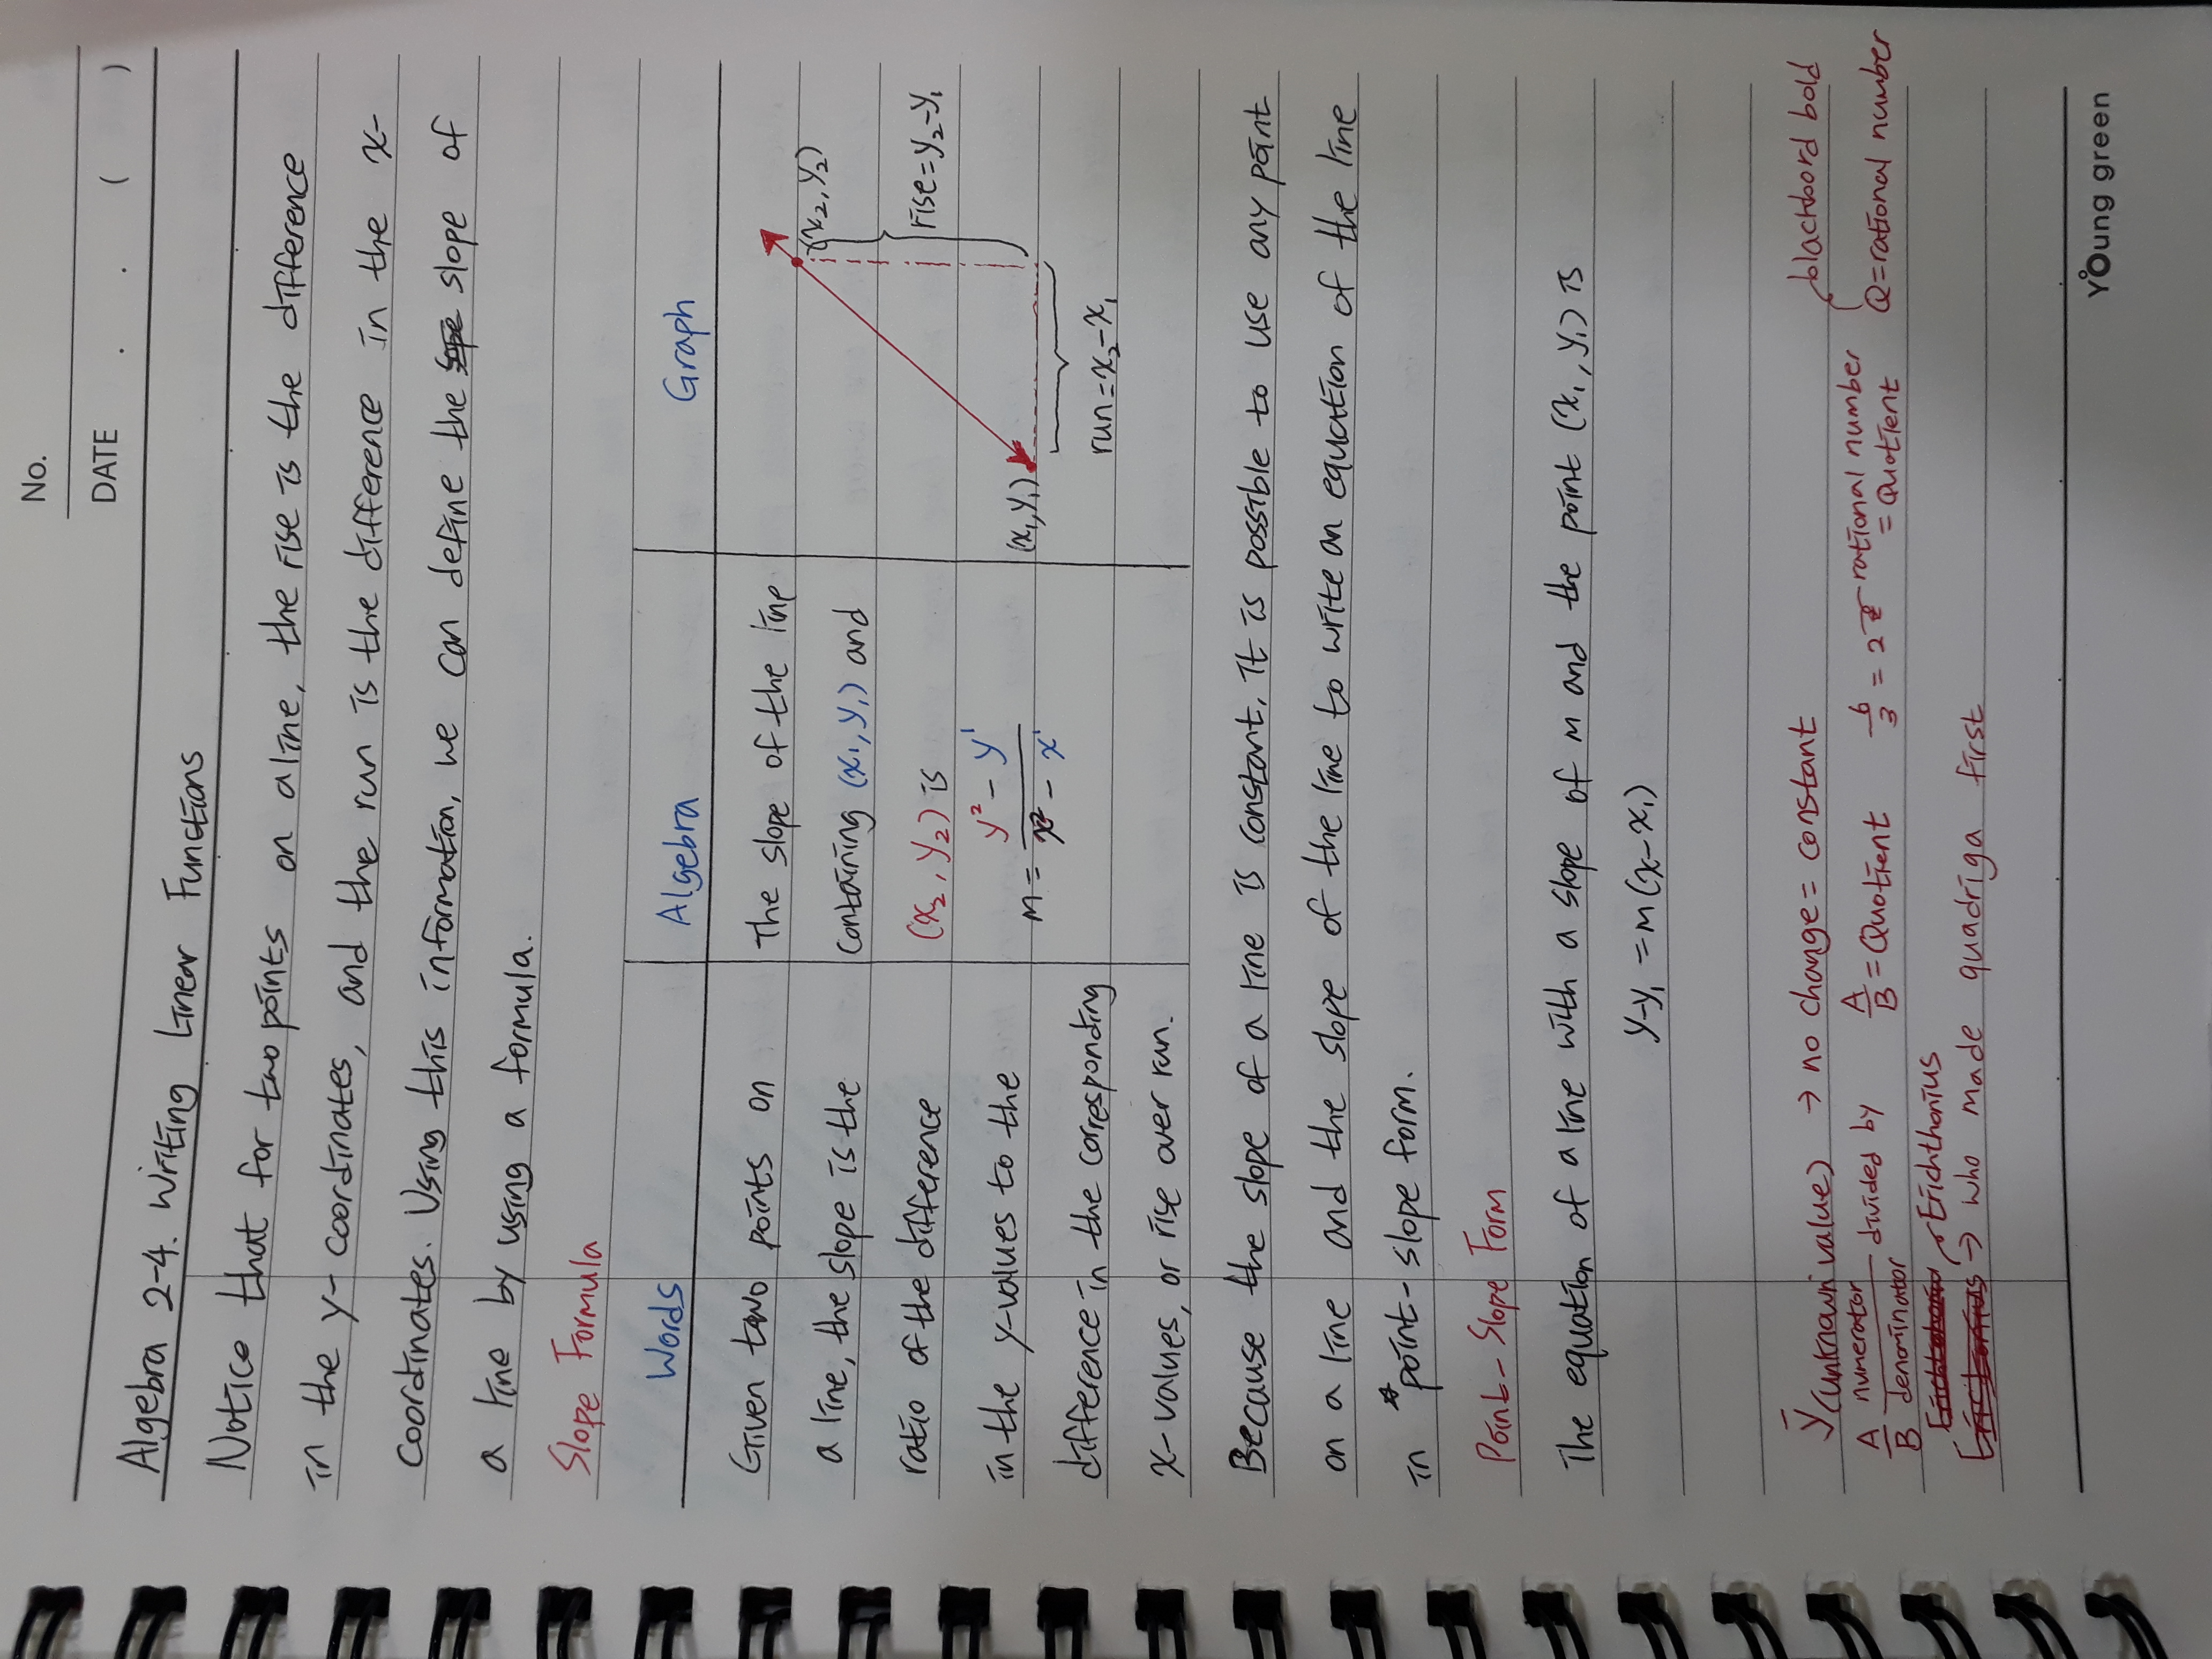 No.
DATE . . ( )
Algebra 2-4. Writing Linear Functions
Notice that for two points on a line, the rise is the difference
in the y-coordinates, and the run is the difference in the x-
coordinates. Using this information, we can define the slope of
a line by using a formula.
Slope Formula
Words
Given two points on
a line, the slope is the
ratio of the difference
in the y-values to the
difference in the corresponding
x-values, or rise over run.
Algebra
The slope of the line
containing (x¹, y₁) and
(x₂, y₂) is
m = y² - y¹ / x² - x¹
Graph
(x₂, y₂)
rise=y₂-y₁
(x₁, y₁)
run=x₂-x₁
Because the slope of a line is constant, it is possible to use any point
on a line and the slope of the line to write an equation of the line
in point-slope form.
Point-Slope Form
The equation of a line with a slope of m and the point (x₁, y₁) is
y-y₁ = m(x-x₁)
y(unknown value) → no change = constant
blackboard bold
A/B numerator/denominator divided by A/B = Quotient 6/3 = 2 rational number
= Quotient
Q=rational number
Erichthonius
→ who made quadriga first
Young green